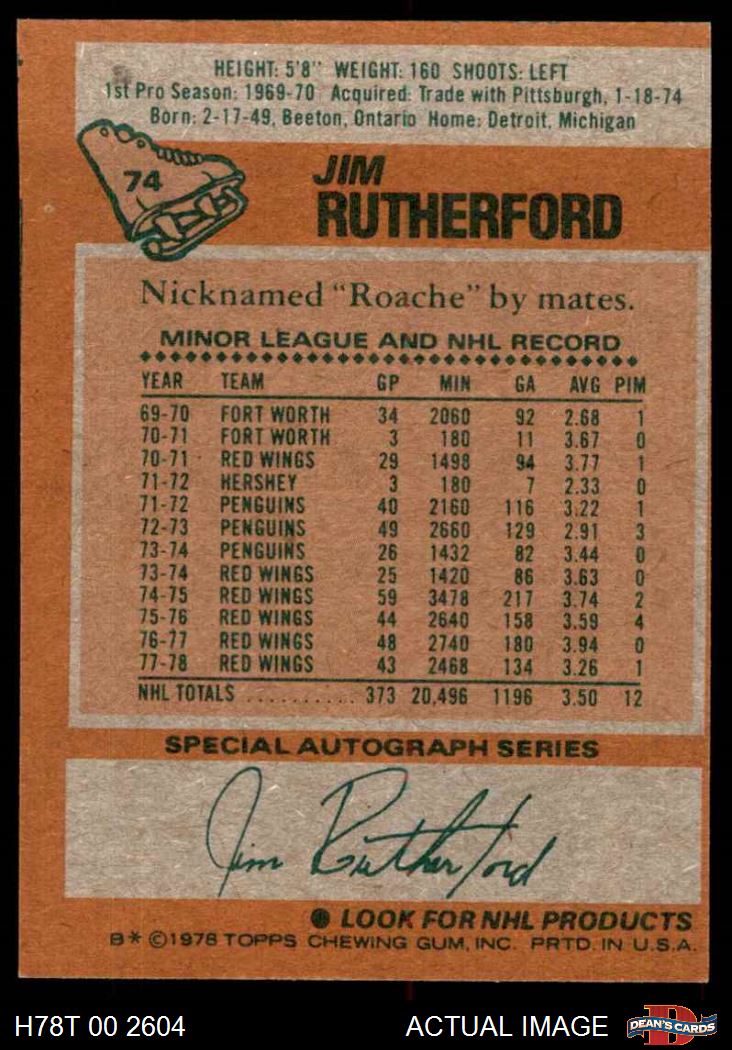 HEIGHT: 5'8" WEIGHT: 160 SHOOTS: LEFT
1st Pro Season: 1969-70 Acquired: Trade with Pittsburgh, 1-18-74
Born: 2-17-49, Beeton, Ontario Home: Detroit, Michigan
74
JIM
RUTHERFORD
Nicknamed "Roache" by mates.
MINOR LEAGUE AND NHL RECORD
YEAR TEAM GP MIN GA AVG PIM
69-70 FORT WORTH 34 2060 92 2.68 1
70-71 FORT WORTH 3 180 11 3.67 0
70-71 RED WINGS 29 1498 94 3.77 1
71-72 HERSHEY 3 180 7 2.33 0
71-72 PENGUINS 40 2160 116 3.22 1
72-73 PENGUINS 49 2660 129 2.91 3
73-74 PENGUINS 26 1432 82 3.44 0
73-74 RED WINGS 25 1420 86 3.63 0
74-75 RED WINGS 59 3478 217 3.74 2
75-76 RED WINGS 44 2640 158 3.59 4
76-77 RED WINGS 48 2740 180 3.94 0
77-78 RED WINGS 43 2468 134 3.26 1
NHL TOTALS .......... 373 20,496 1196 3.50 12
SPECIAL AUTOGRAPH SERIES
Jim Rutherford
● LOOK FOR NHL PRODUCTS
B* ©1978 TOPPS CHEWING GUM, INC. PRTD. IN U.S.A.
H78T 00 2604 ACTUAL IMAGE D DEAN'S CARDS